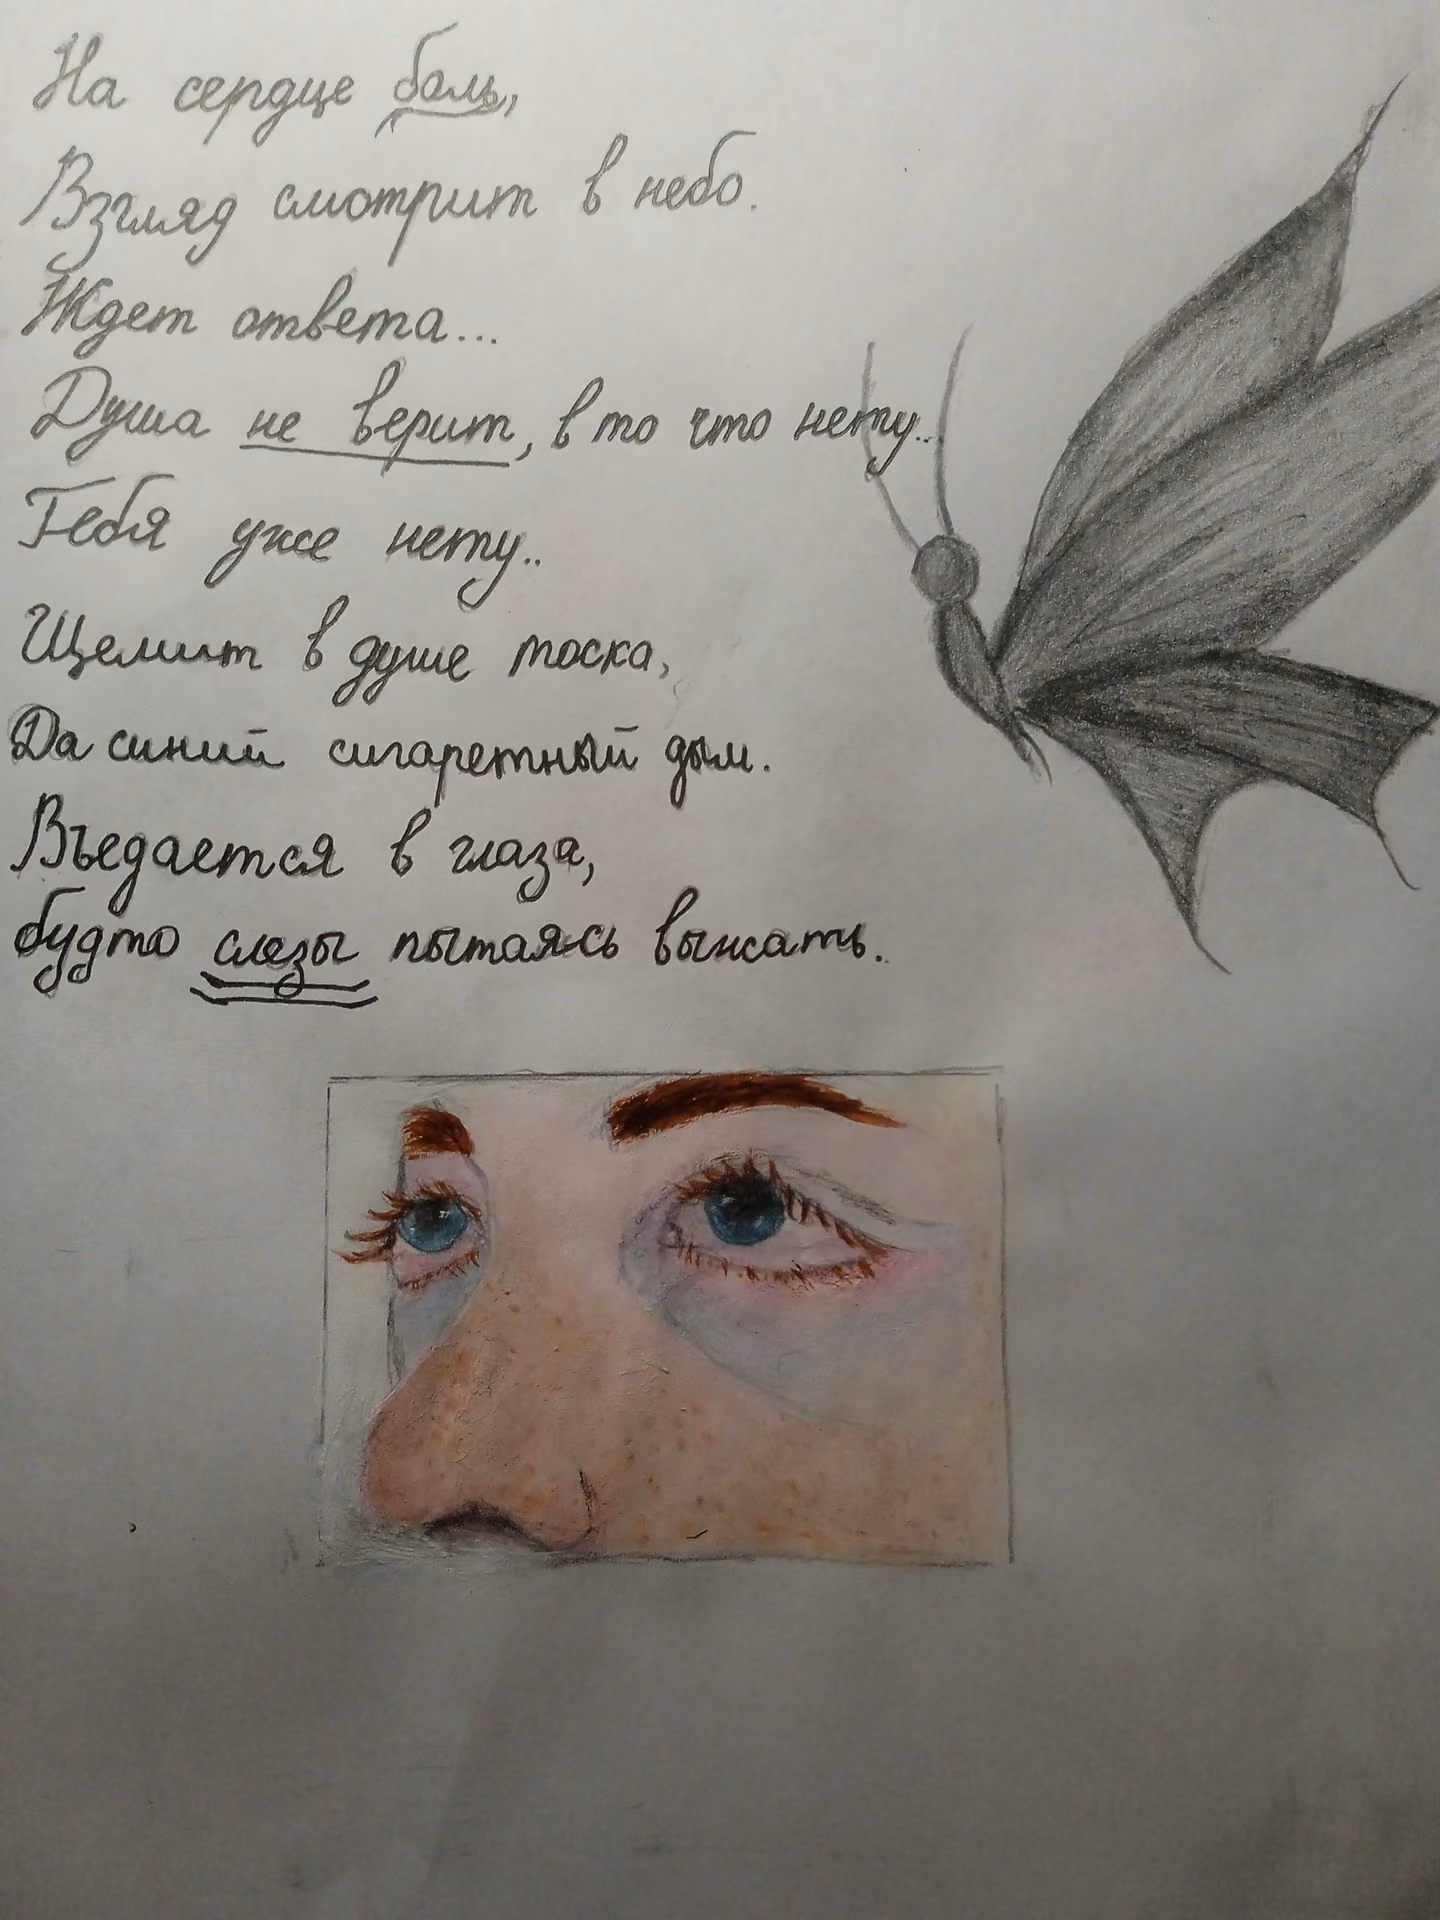 На сердце боль,
Взгляд смотрит в небо.
Ждет ответа...
Душа не верит, в то что нету..
Тебя уже нету..
Щемит в душе тоска,
Да синий сигаретный дым.
Въедается в глаза,
будто слезы пытаясь выжать.